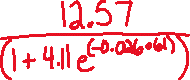 12.57
(1 + 4.11 e^(-0.026·61))